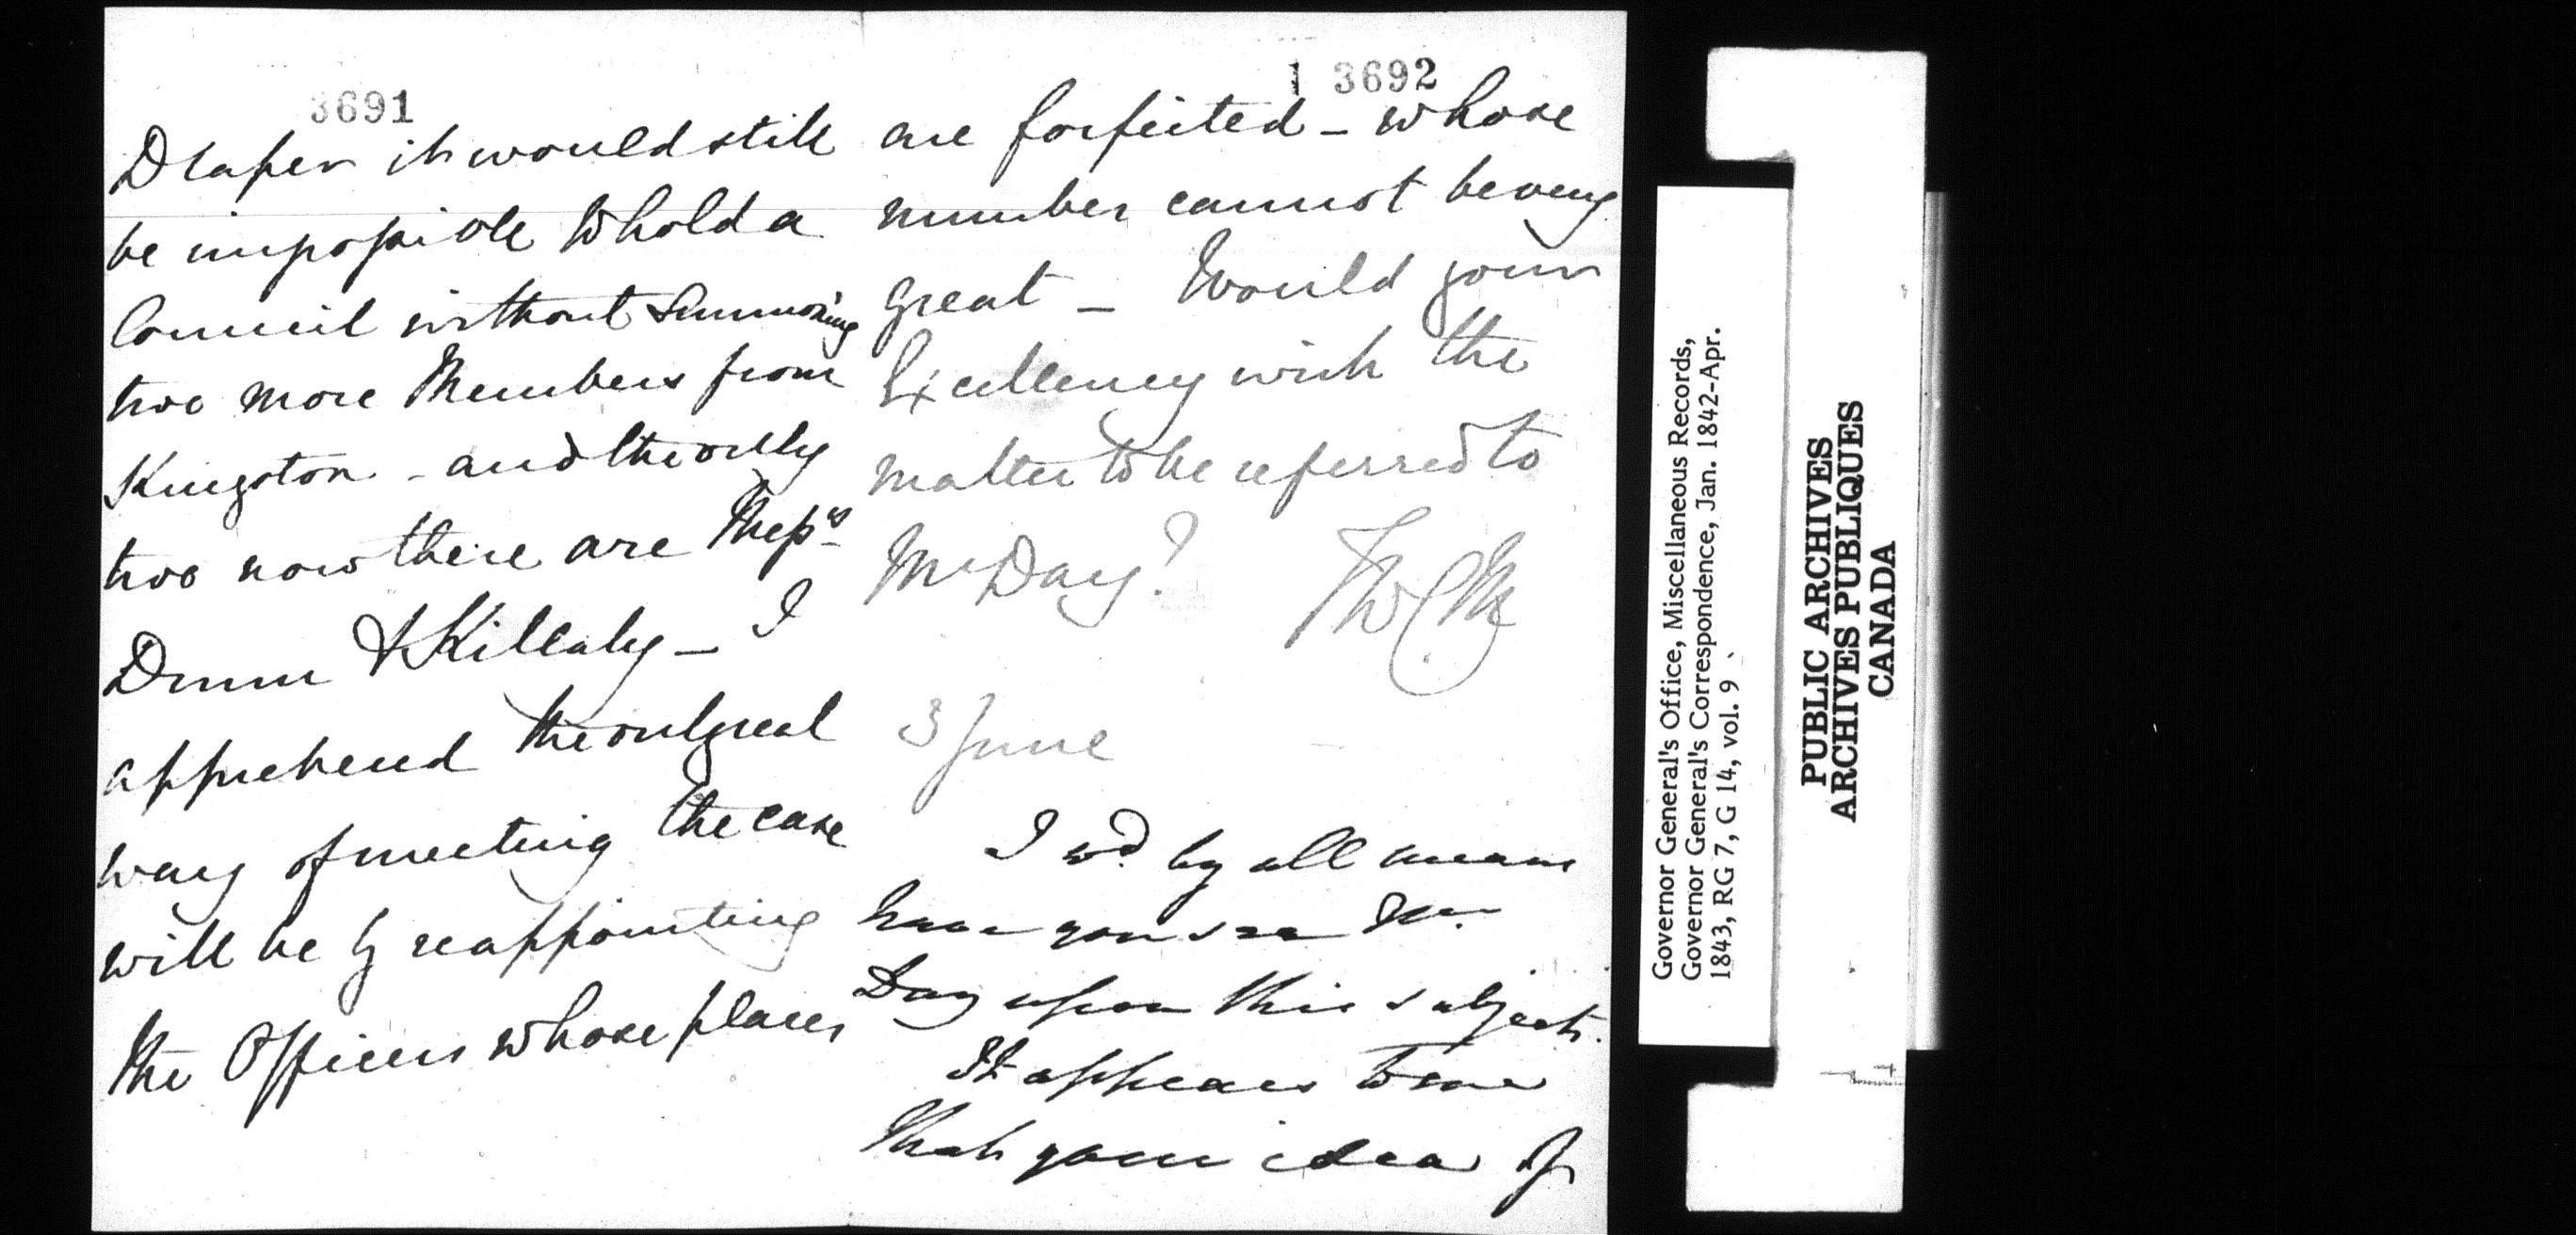 3691
Draper it would still
be impossible to hold a
Council without summoning
two more Members from
Kingston - and the only
two now there are Mess.rs
Dunn & Killaly - I
apprehend the only real
way of meeting the case
will be by reappointing
the Officers whose places
3692
are forfeited - whose
number cannot be very
great - Would your
Excellency wish the
matter to be referred to
Mr Day? TWCM
3 June
I wd. by all means
have you see Mr.
Day upon this subject.
It appears to me
that your idea of
Governor General's Office, Miscellaneous Records,
Governor General's Correspondence, Jan. 1842-Apr.
1843, RG 7, G 14, vol. 9
PUBLIC ARCHIVES
ARCHIVES PUBLIQUES
CANADA